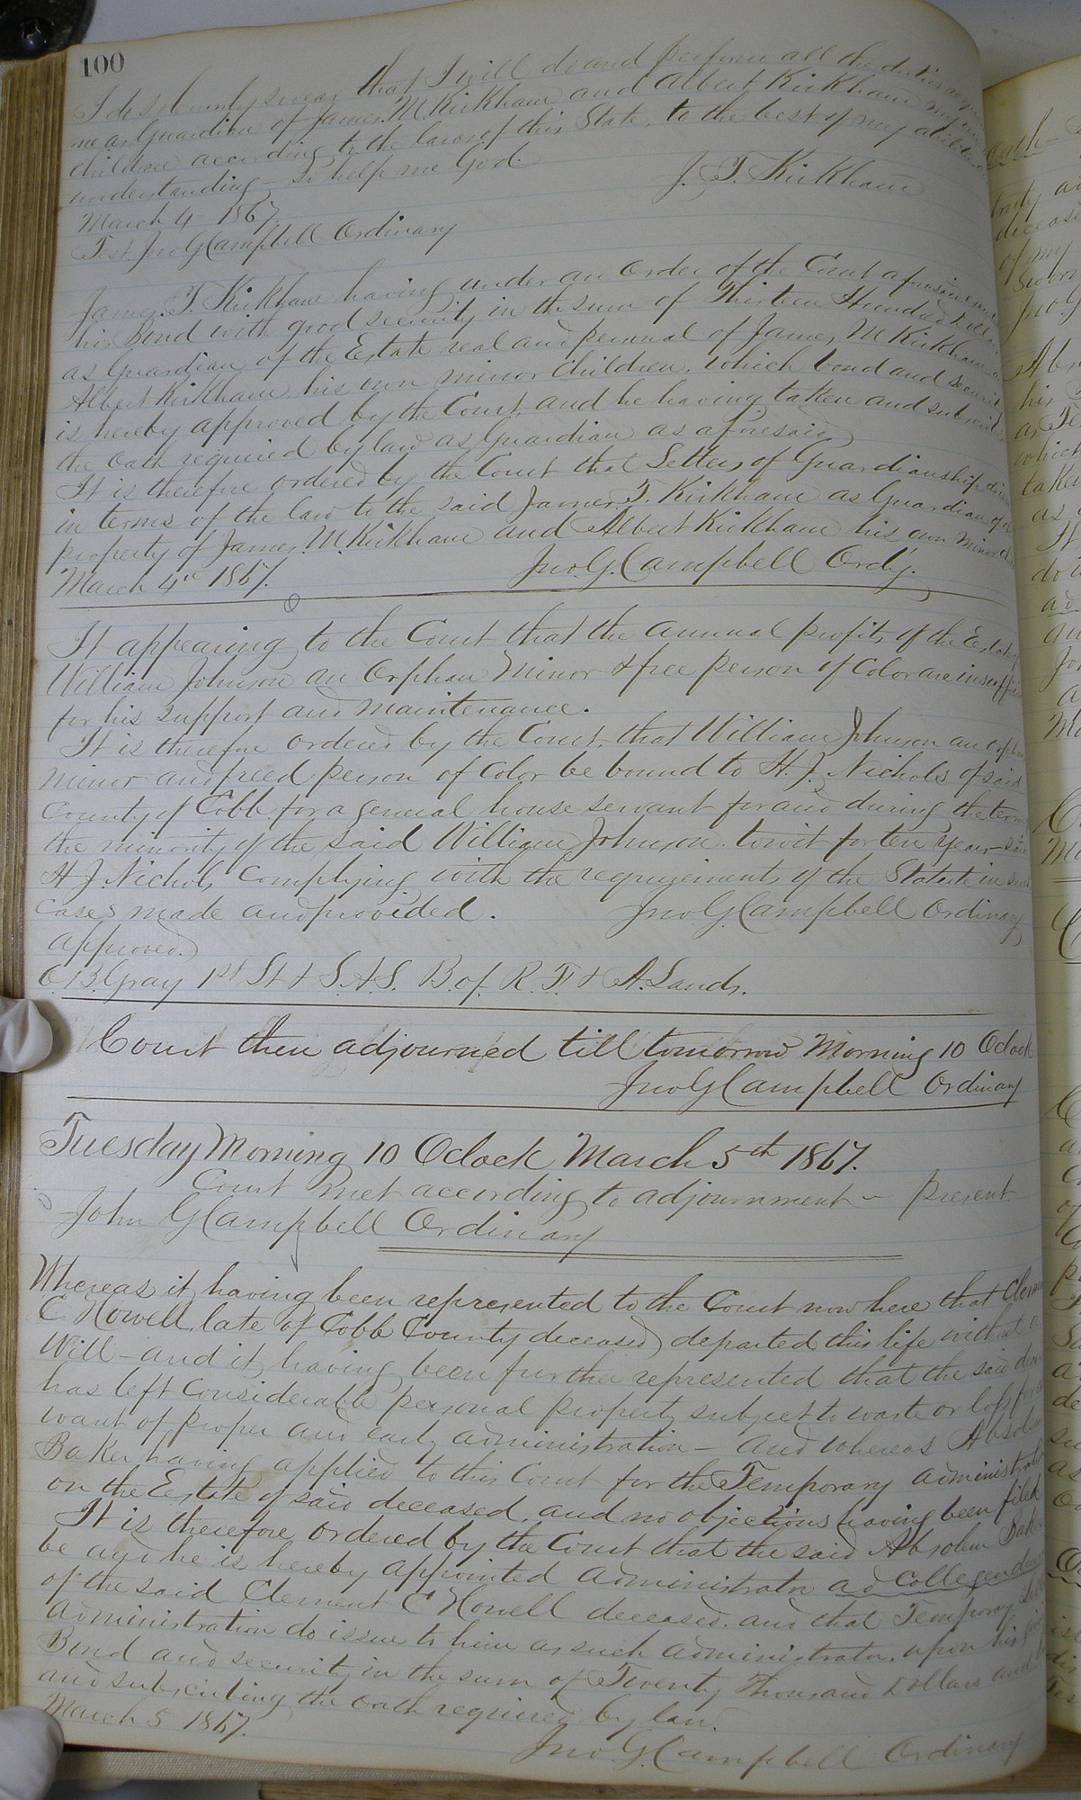 100
I do solemnly swear that I will do and perform all the duties
me as Guardian of James M Kirkham and Albert Kirkham my
children according to the laws of this State, to the best of my abilities
understanding - So help me God.
J. T. Kirkham
March 4 1867.
Test. Jno G Campbell Ordinary
James T. Kirkham having under an Order of the Court
his Bond with good security in the sum of Thirteen Hundred
as Guardian of the Estate real and personal of James M Kirkham
Albert Kirkham, his own minor Children, which bond and security
is hereby approved by the Court, and he having taken and
the oath required by law as Guardian as aforesaid
It is therefore ordered by the Court that Letters of Guardianship
in terms of the law to the said James T. Kirkham as Guardian of
property of James M. Kirkham and Albert Kirkham his own minor
March 4th 1867. Jno. G. Campbell Ordy.
It appearing to the Court that the annual profits of the Estate
William Johnson an Orphan Minor & free person of Color are
for his support and maintenance.
It is therefore ordered by the Court, that William Johnson an
minor and freed person of Color be bound to H. J. Nichols of said
County of Cobb for a general house servant for and during the term
the minority of the said William Johnson, towit for ten years
H J Nichols complying with the requirements of the Statute in such
cases made and provided. Jno G Campbell Ordinary
approved.
O. B. Gray 1st Lt & S. A. S. B. of. R. F. & A. Lands.
Court then adjourned till tomorrow Morning 10 Oclock
Jno G Campbell Ordinary
Tuesday Morning 10 Oclock March 5th 1867.
Court met according to adjournment - present
John G Campbell Ordinary
Whereas it having been represented to the Court now here that
C Howell late of Cobb County deceased departed this life without
Will - and it having been further represented that the said
has left Considerable personal property subject to waste or loss
want of proper and early administration - and whereas Absolem
Baker having applied to this Court for the Temporary administration
on the Estate of said deceased, and no objections having been filed
It is therefore ordered by the Court that the said Absolem Baker
be and he is hereby appointed administrator ad Colligendum
of the said Clement C Howell deceased. and that Temporary
administration do issue to him as such administrator, upon his
Bond and security in the sum of Twenty Thousand Dollars and
and subscribing the oath required by law.
March 5 1867.
Jno. G. Campbell Ordinary